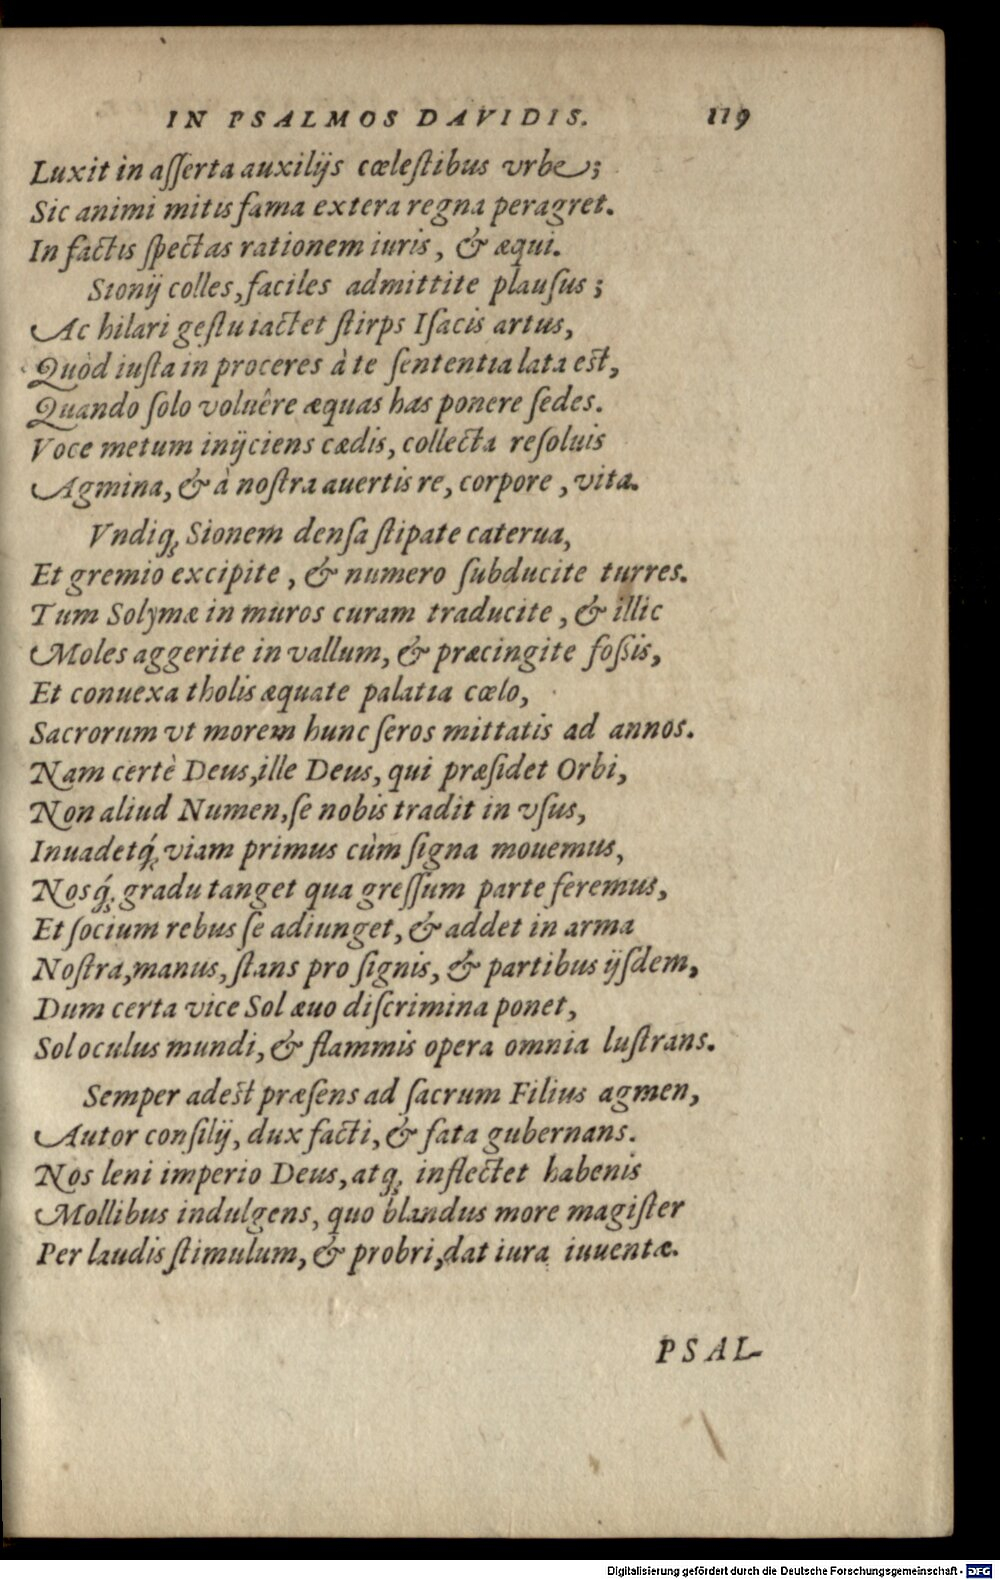 IN PSALMOS DAVIDIS. 119
Luxit in aſſerta auxilijs cœleſtibus vrbe;
Sic animi mitis fama extera regna peragret.
In factis ſpectas rationem iuris, & æqui.
Sionij colles, faciles admittite plauſus;
Ac hilari geſtu iactet ſtirps Iſacis artus,
Quòd iuſta in proceres à te ſententia lata eſt,
Quando ſolo voluêre æquas has ponere ſedes.
Voce metum inijciens cædis, collecta reſoluis
Agmina, & à noſtra auertis re, corpore, vita.
Vndiq; Sionem denſa ſtipate caterua,
Et gremio excipite, & numero ſubducite turres.
Tum Solymæ in muros curam traducite, & illic
Moles aggerite in vallum, & præcingite foſsis,
Et conuexa tholis æquate palatia cœlo,
Sacrorum vt morem hunc ſeros mittatis ad annos.
Nam certè Deus, ille Deus, qui præſidet Orbi,
Non aliud Numen, ſe nobis tradit in vſus,
Inuadetq́; viam primus cùm ſigna mouemus,
Nosq́; gradu tanget qua greſſum parte feremus,
Et ſocium rebus ſe adiunget, & addet in arma
Noſtra, manus, ſtans pro ſignis, & partibus ijſdem,
Dum certa vice Sol æuo diſcrimina ponet,
Sol oculus mundi, & flammis opera omnia luſtrans.
Semper adeſt præſens ad ſacrum Filius agmen,
Autor conſilij, dux facti, & fata gubernans.
Nos leni imperio Deus, atq; inflectet habenis
Mollibus indulgens, quo blandus more magiſter
Per laudis ſtimulum, & probri, dat iura iuuentæ.
PSAL-
Digitalisierung gefördert durch die Deutsche Forschungsgemeinschaft - DFG